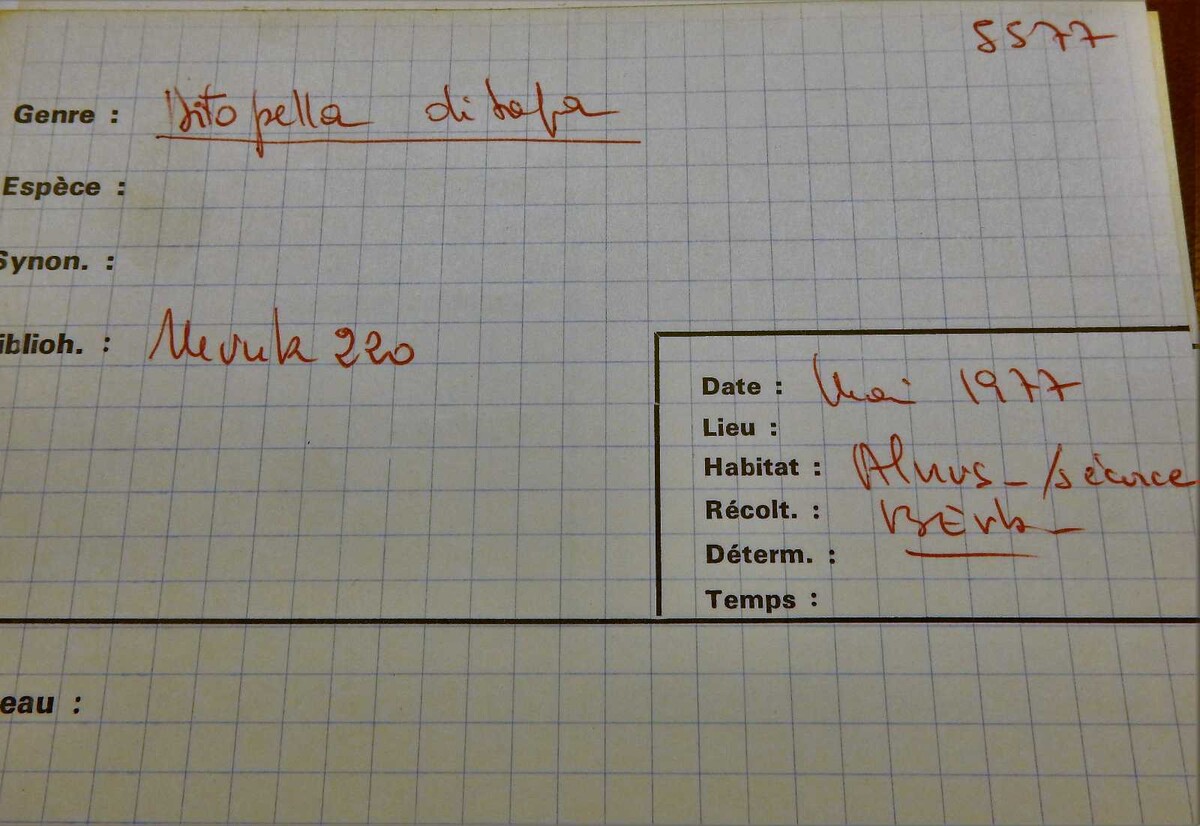 5577
Genre : Ditopella ditopa
Espèce :
Synon. :
iblioh. : Munk 220
Date : Mai 1977
Lieu :
Habitat : Alnus - /s écorce
Récolt. :
Déterm. :
Temps :
eau :